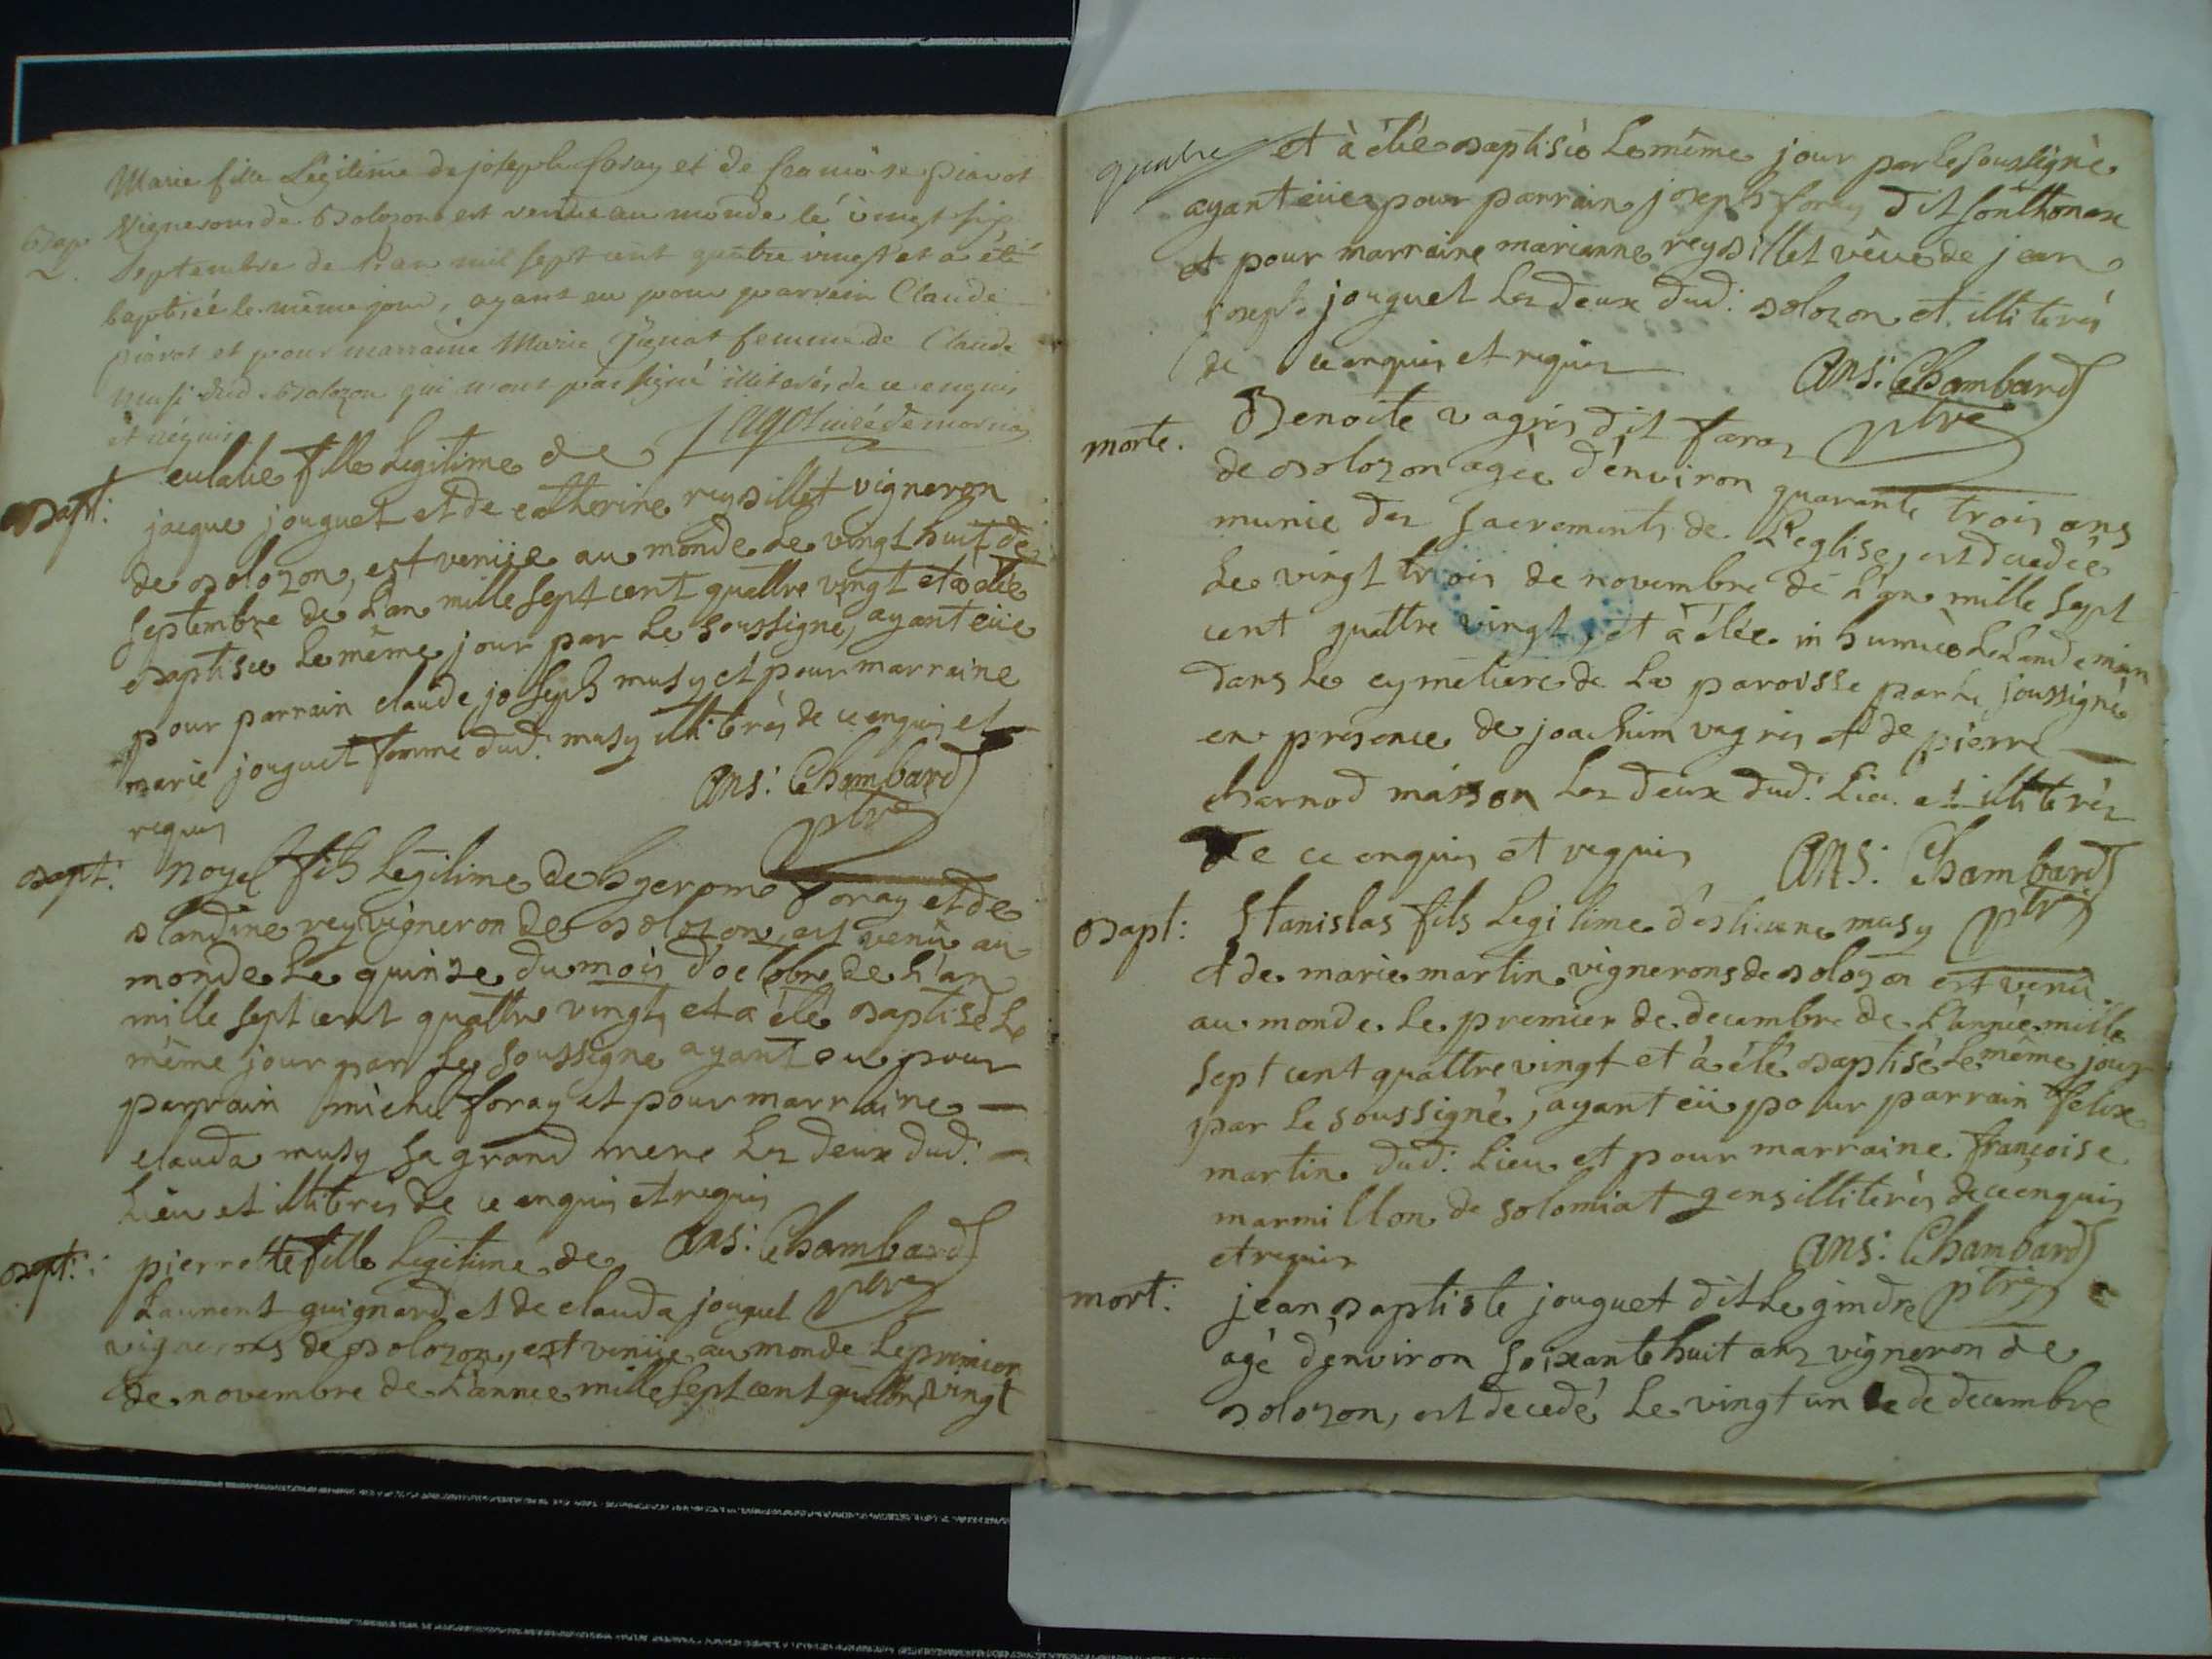 Marie fille Légitime de joseph foray et de francoise piarot
Bap. Vignerons de Bolozon est venue au monde lé vingt sip
Septembre de l'an mil sept cent quatre vingt et a été
baptisée le même jour, ayant eu pour parrein Claude
piarot et pour marraine Marie Junot femme de Claude
musi dud. Bolozon qui n'ont pas signé illiterés de ce enquis
et réquis
curé de mornay
bapt: eulalie fille Legitime de
jacque jouguet et de catherine reybillet vigneron
de bolozon, est venüe au monde Le vingt huit de
septembre de L'an mille sept cent quattre vingt et a étée
baptisée Le même jour par Le soussigné, ayant eüe
pour parrain claude joseph musy et pour marraine
marie jouguet femme dud: musy illiterés de ce enquis et
requis
Ans: Chambard
ptre
bapt: noyel fils Legitime de hyerome foray et de
blandine rey vigneron de bolozon, est venû au
monde Le quinze du mois d'octobre de L'an
mille sept cent quattre vingts et a été baptisé Le
même jour par Le soussigné ayant eu pour
parrain michel foray et pour marraine —
clauda musy sa grand mere Les deux dud: —
Lieu et illiterés de ce enquis et requis
Ans: Chambard
ptre
bapt: pierrette fille Legitime de
Laurent guignard et de clauda jouguet
vignerons de bolozon, est venüe au monde Le premier
de novembre de L'année mille sept cent quattre vingt
et à étée baptisée Le même jour par Le soussigné
ayant eüe pour parrain joseph foray dit fonthonax
et pour marraine marianne reybillet vêuve de jean
joseph jouguet Les deux dud: bolozon et illiterés
de ce enquis et requis
Ans: Chambard
ptre
morte. Benoite vagris dit faraz
de bolozon agée d'énviron quarante trois ans
munie des sacrements de L'eglise, est decedée
Le vingt trois de novembre de L'an mille sept
cent quattre vingt, et à étée inhumée Le Landemain
dans Le cymetiere de La paroisse par Le soussigné
en presence de joachim vagris et de pierre —
charnod masson Les deux dud: Lieu et illiterés
de ce enquis et requis
Ans: Chambard
ptre
bapt: Stanislas fils Legitime d'estienne musy
et de marie martin vignerons de bolozon est venû
au monde Le premier de decembre de L'année mille
sept cent quattre vingt et à été baptisé Le même jour
par Le soussigné, ayant eü pour parrain félix
martin dud: Lieu et pour marraine françoise
marmillon de solomiat gens illiterés de ce enquis
et requis
Ans: Chambard
ptre
mort: jean baptiste jouguet dit Le gindre
agé d'environ soixante huit ans vigneron de
bolozon, est decedé Le vingt un de decembre